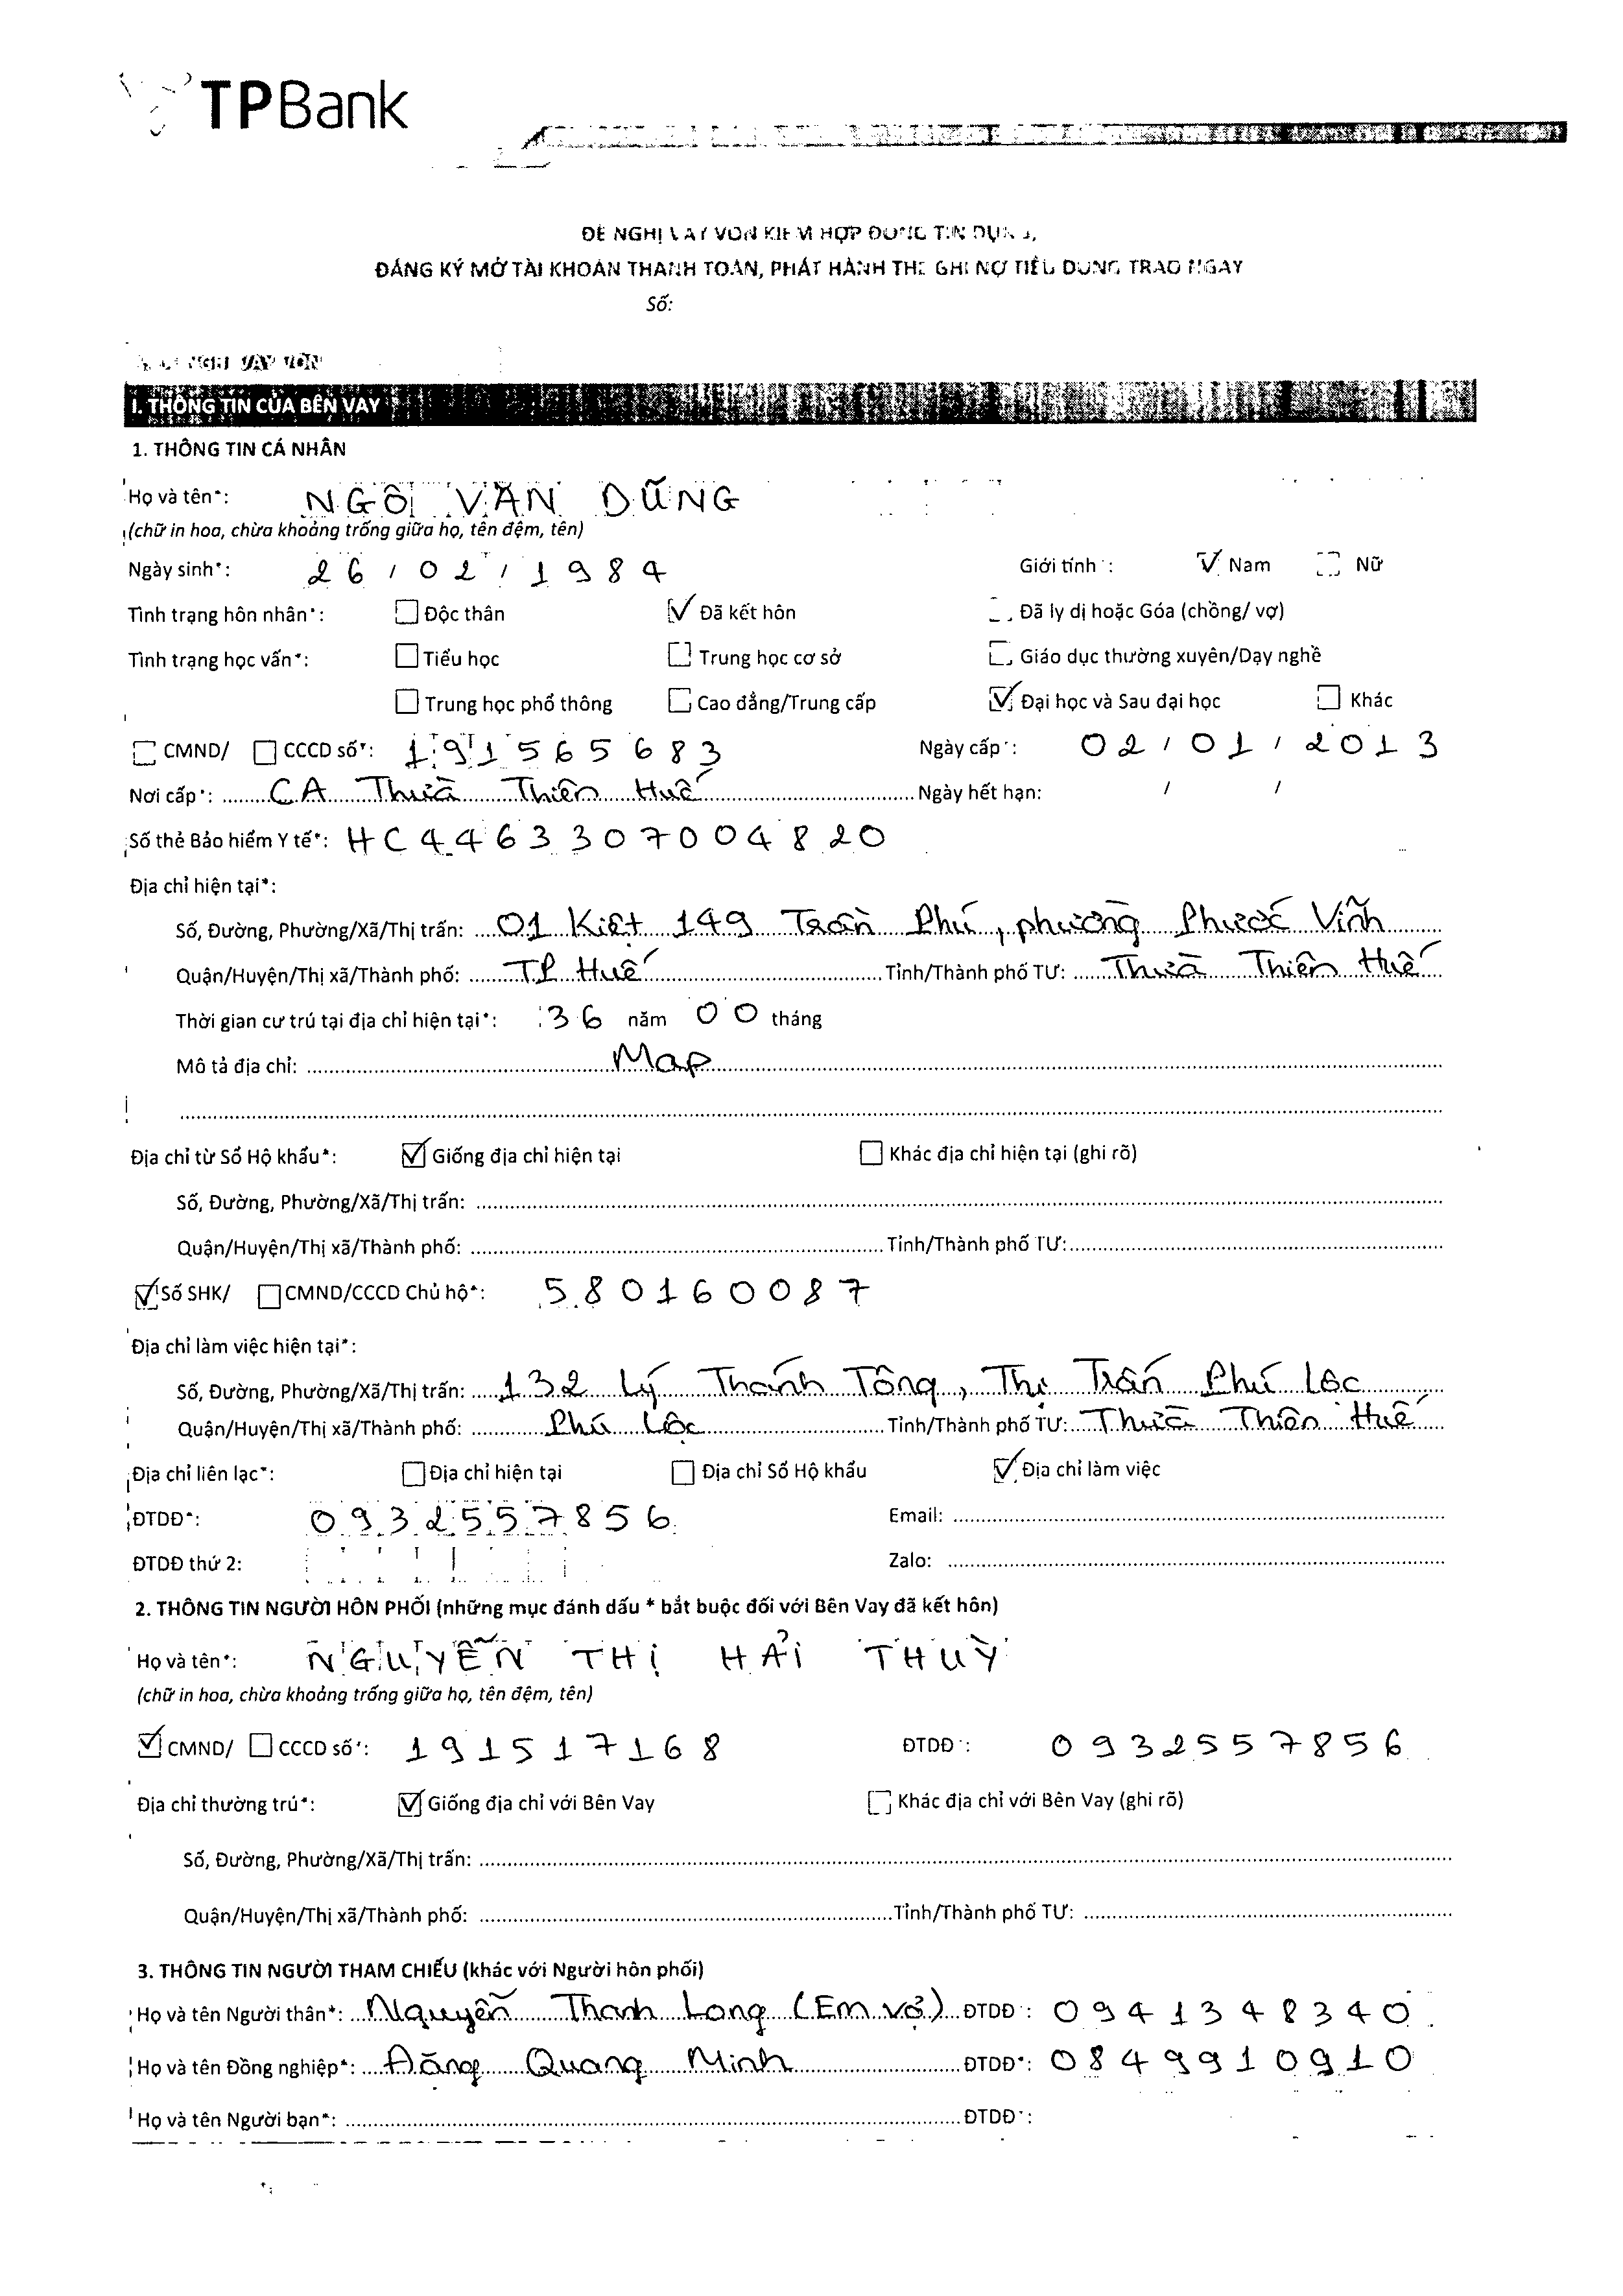 TPBank
ĐỀ NGHỊ VAY VỐN KIÊM HỢP ĐỒNG TÍN DỤNG,
ĐĂNG KÝ MỞ TÀI KHOẢN THANH TOÁN, PHÁT HÀNH THẺ GHI NỢ TIÊU DÙNG TRAO NGAY
Số:
ĐỀ NGHỊ VAY VỐN
I. THÔNG TIN CỦA BÊN VAY
1. THÔNG TIN CÁ NHÂN
Họ và tên*: NGÔ VĂN DŨNG
(chữ in hoa, chừa khoảng trống giữa họ, tên đệm, tên)
Ngày sinh*: 26/02/1984 Giới tính*: Nam Nữ
Tình trạng hôn nhân*: Độc thân Đã kết hôn Đã ly dị hoặc Góa (chồng/ vợ)
Tình trạng học vấn*: Tiểu học Trung học cơ sở Giáo dục thường xuyên/Dạy nghề
Trung học phổ thông Cao đẳng/Trung cấp Đại học và Sau đại học Khác
CMND/ CCCD số*: 191565683 Ngày cấp*: 02/01/2013
Nơi cấp*: CA Thừa Thiên Huế Ngày hết hạn: / /
Số thẻ Bảo hiểm Y tế*: HC4463307004820
Địa chỉ hiện tại*:
Số, Đường, Phường/Xã/Thị trấn: 01 Kiệt 149 Trần Phú, phường Phước Vĩnh
Quận/Huyện/Thị xã/Thành phố: TP Huế Tỉnh/Thành phố TƯ: Thừa Thiên Huế
Thời gian cư trú tại địa chỉ hiện tại*: 36 năm 00 tháng
Mô tả địa chỉ: Map
Địa chỉ từ Sổ Hộ khẩu*: Giống địa chỉ hiện tại Khác địa chỉ hiện tại (ghi rõ)
Số, Đường, Phường/Xã/Thị trấn:
Quận/Huyện/Thị xã/Thành phố: Tỉnh/Thành phố TƯ:
Số SHK/ CMND/CCCD Chủ hộ*: 580160087
Địa chỉ làm việc hiện tại*:
Số, Đường, Phường/Xã/Thị trấn: 132 Lý Thánh Tông, Thị Trấn Phú Lộc
Quận/Huyện/Thị xã/Thành phố: Phú Lộc Tỉnh/Thành phố TƯ: Thừa Thiên Huế
Địa chỉ liên lạc*: Địa chỉ hiện tại Địa chỉ Sổ Hộ khẩu Địa chỉ làm việc
ĐTDĐ*: 0932557856 Email:
ĐTDĐ thứ 2: Zalo:
2. THÔNG TIN NGƯỜI HÔN PHỐI (những mục đánh dấu * bắt buộc đối với Bên Vay đã kết hôn)
Họ và tên*: NGUYỄN THỊ HẢI THUỲ
(chữ in hoa, chừa khoảng trống giữa họ, tên đệm, tên)
CMND/ CCCD số*: 191517168 ĐTDĐ*: 0932557856
Địa chỉ thường trú*: Giống địa chỉ với Bên Vay Khác địa chỉ với Bên Vay (ghi rõ)
Số, Đường, Phường/Xã/Thị trấn:
Quận/Huyện/Thị xã/Thành phố: Tỉnh/Thành phố TƯ:
3. THÔNG TIN NGƯỜI THAM CHIẾU (khác với Người hôn phối)
Họ và tên Người thân*: Nguyễn Thanh Long (Em vợ) ĐTDĐ*: 0941348340
Họ và tên Đồng nghiệp*: Đặng Quang Minh ĐTDĐ*: 0849910910
Họ và tên Người bạn*: ĐTDĐ*: